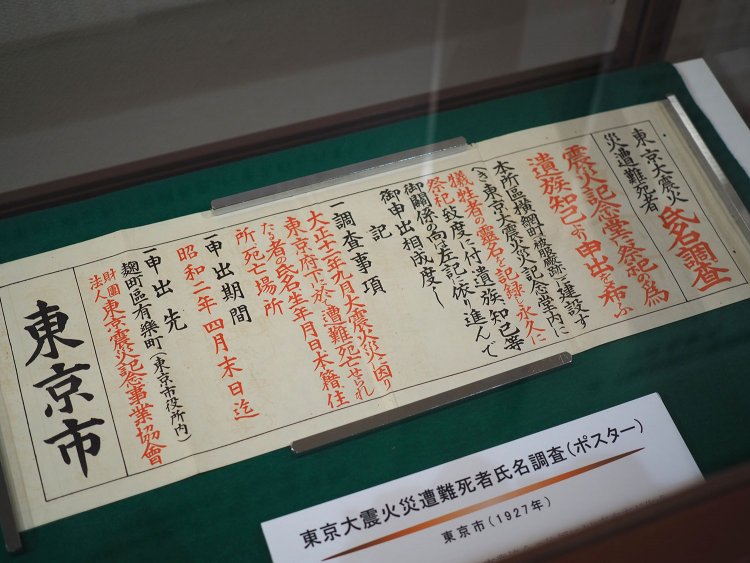 東京大震火
災遭難死者
氏名調査
震災記念堂に祭祀の為
遺族知己より申出を希ふ
本所區横網町被服廠跡に建設す
べき東京大震災記念堂内に
犠牲者の霊名を記録し永久に
祭祀致度に付遺族知己等
御關係の向は左記に依り進んで
御申出相成度し
記
一調査事項
大正十二年九月大震火災に因り
東京府下に於て遭難死亡せられ
たる者の氏名生年月日本籍住
所死亡場所
一申出期間
昭和二年四月末日迄
一申出先
麹町區有樂町(東京市役所内)
財團
法人
東京震災記念事業協會
東京市
東京大震火災遭難死者氏名調査(ポスター)
東京市(1927年)